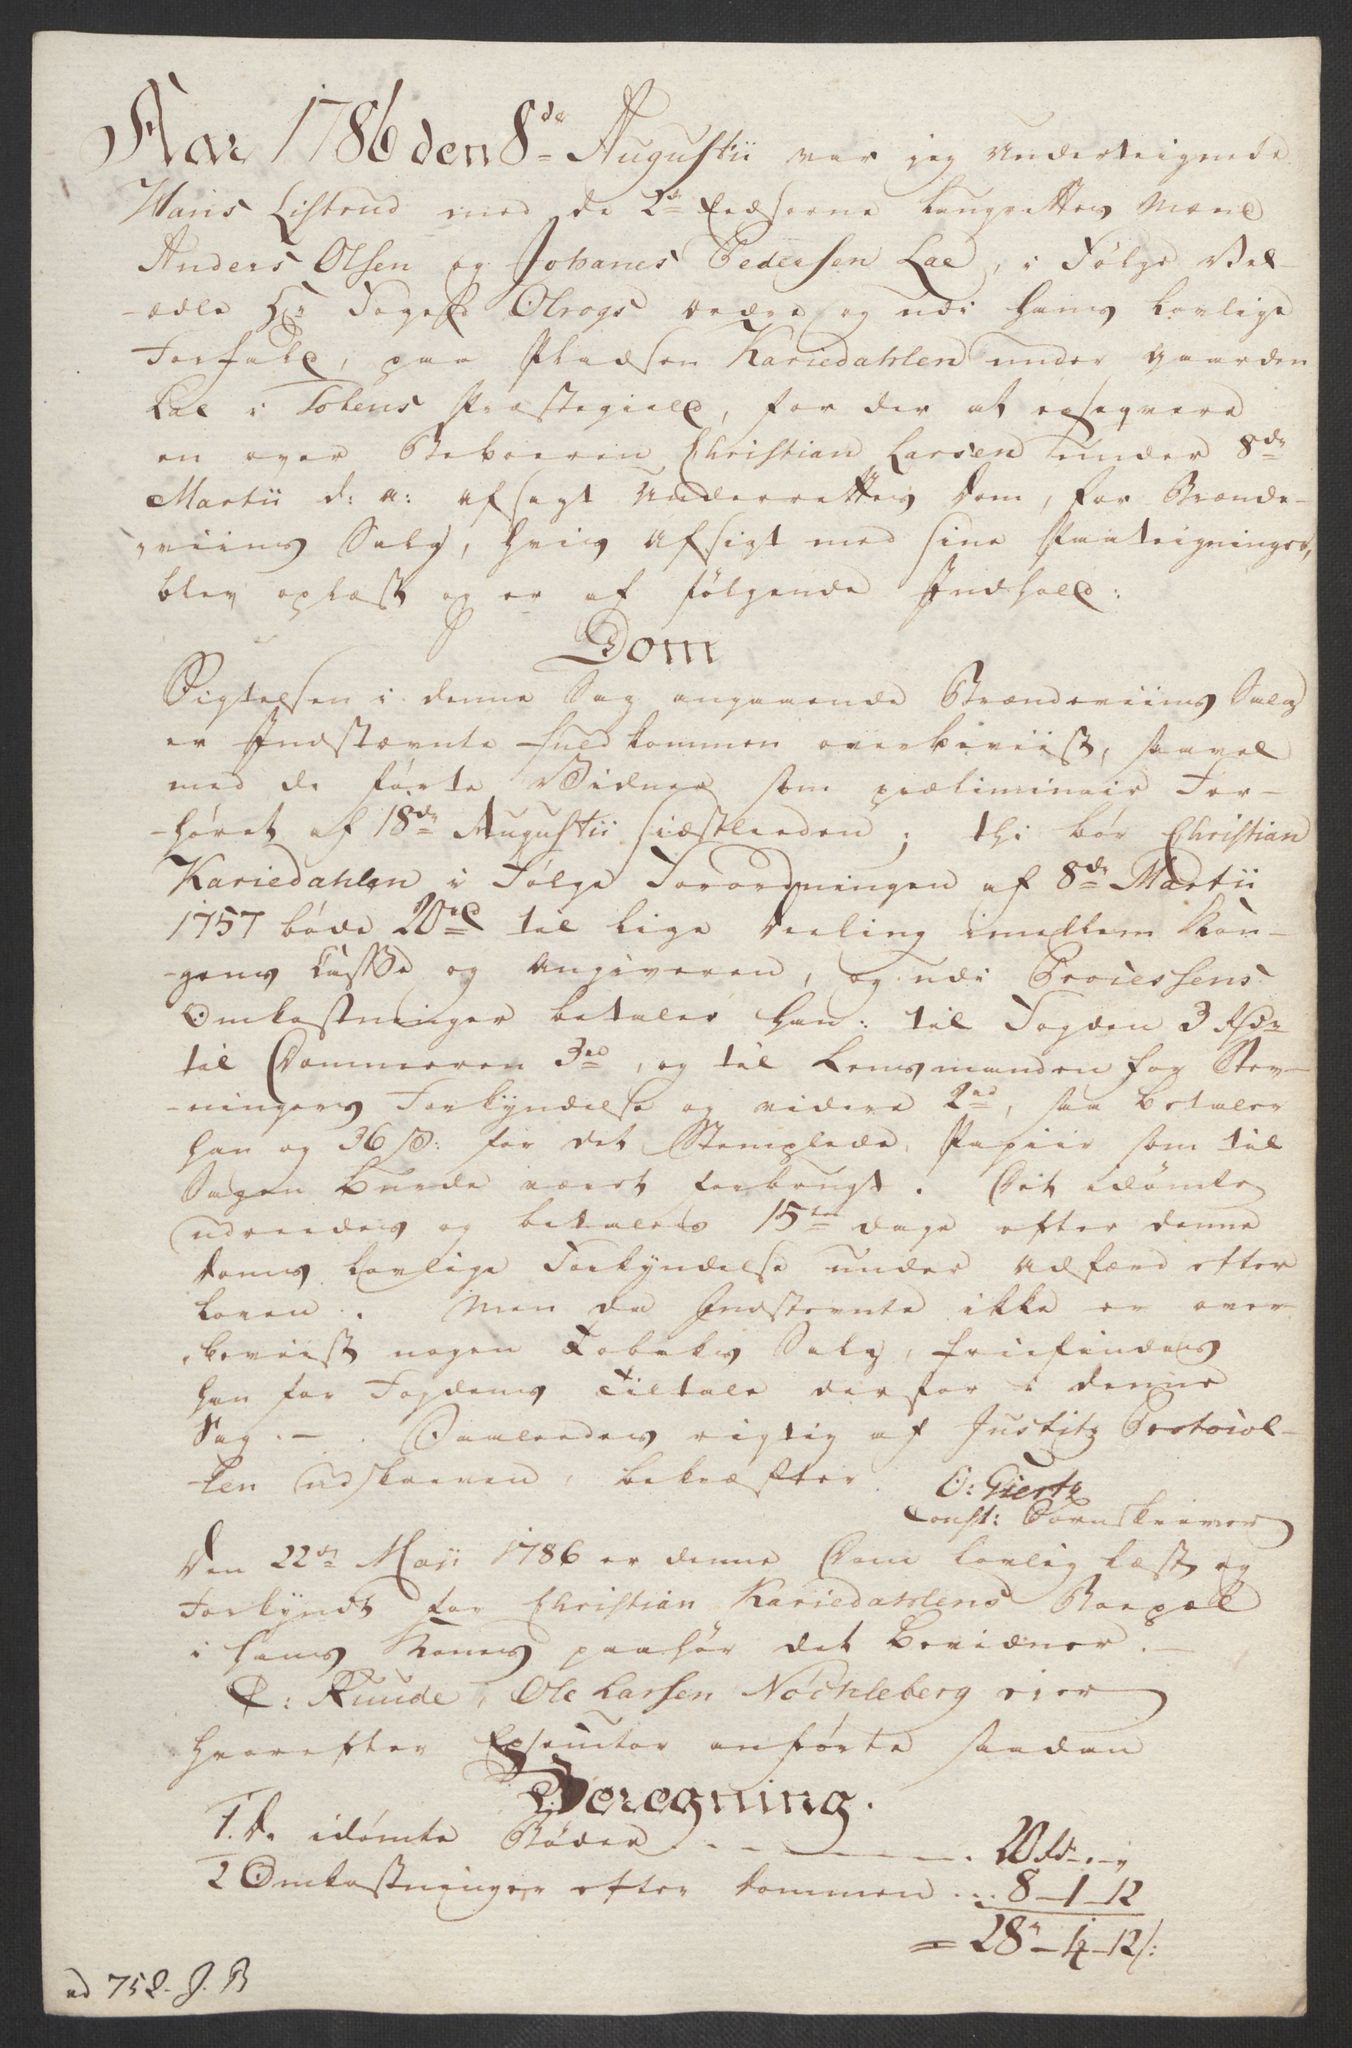 Aar 1786 den 8de Augustii var jeg underteignede
Hans Listrud med de 2de Eedsorne Laugrettes Mænd
Anders Olsen og Johanes Pedersen Lae, i Følge Vel-
-ædle Hr Foged Olrogs Ordre og udi hans lovlige
Forfald, paa Pladsen Kariedahlen under Gaarden
Lae i Totens Præstegield, for der at exseqvere
en over Beboeren Christian Larsen under 8de
Martii d: a: afsagt Underrettes Dom, for Brænde-
-viins Salg, hvis Afsigt med sine Paateigninger,
blev oplæst og er af følgende Indhold:
Dom
Sigtelsen i denne Sag angaaende Brændeviins Salg
er Indstævnte fuldkommen overbeviist, saavel
med de førte Vidner som præliminair For-
-høret af 18de Augustii sidstleeden; thi bør Christian
Kariedahlen i Følge Forordningen af 8de Martii
1757 bøde 20rd til lige Deeling imellem Kon-
-gens Casse og Angiveren, og udi Processens
Omkostninger betaler han: til Fogden 3 Rdr
til Dommeren 3rd, og til Lensmanden for Stev-
-ningens Forkyndelse og videre 2rd, saa betaler
han og 36 s: for det Stemplede Papiir som til
Sagen burde været forbrugt. Det idømte
udreedes og betales 15ten dage efter denne
Doms lovlige Forkyndelse under Adfærd efter
Loven. Men da Indstevnte ikke er over-
beviist nogen Tobaks Salg, friefindes
han for Fogdens Tiltale derfor i denne
Sag. — Saaleedes rigtig af Justitz Protocol-
-len udskreven, bekræfter O: Giertz
Const: Sornskriver
Den 22de Maji 1786 er denne Dom lovlig læst og
Forkyndt for Christian Kariedahlens Boepæl
i hans Kones paahør det bevidner.
Ruude, Ole Larsen Nøchleberg eier
hvorefter Exsecutor anførte saadan
Beregning.
1. De idømte Bøder . . . 20 Rd - -
2 Omkostninger efter Dommen . . . 8 - 1 - 12
= 28 - 1 - 12 s:
ad 752. J. B